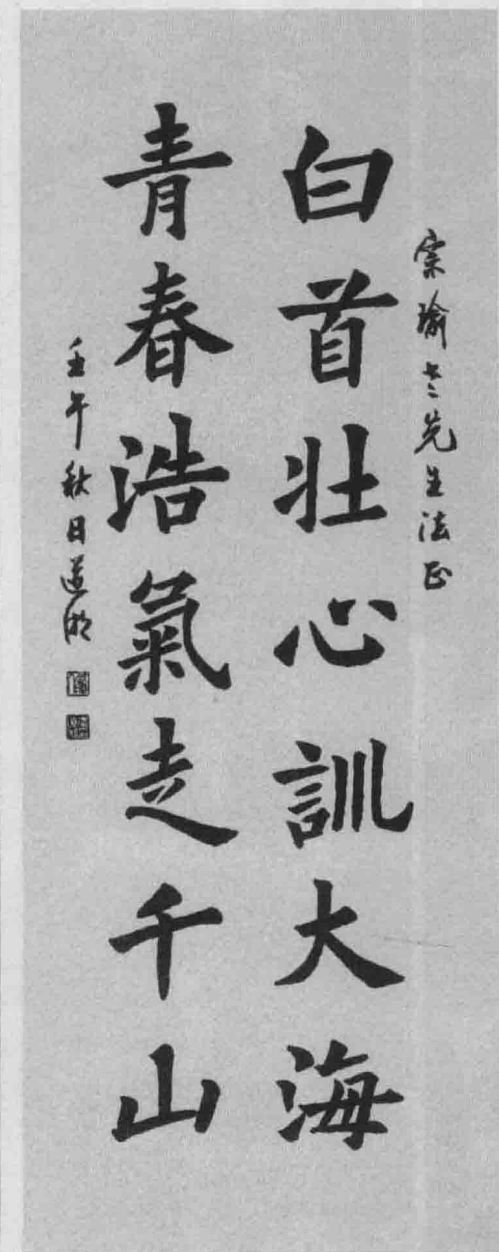 宗瑜老先生法正
白首壮心訓大海
青春浩氣走千山
壬午秋日道